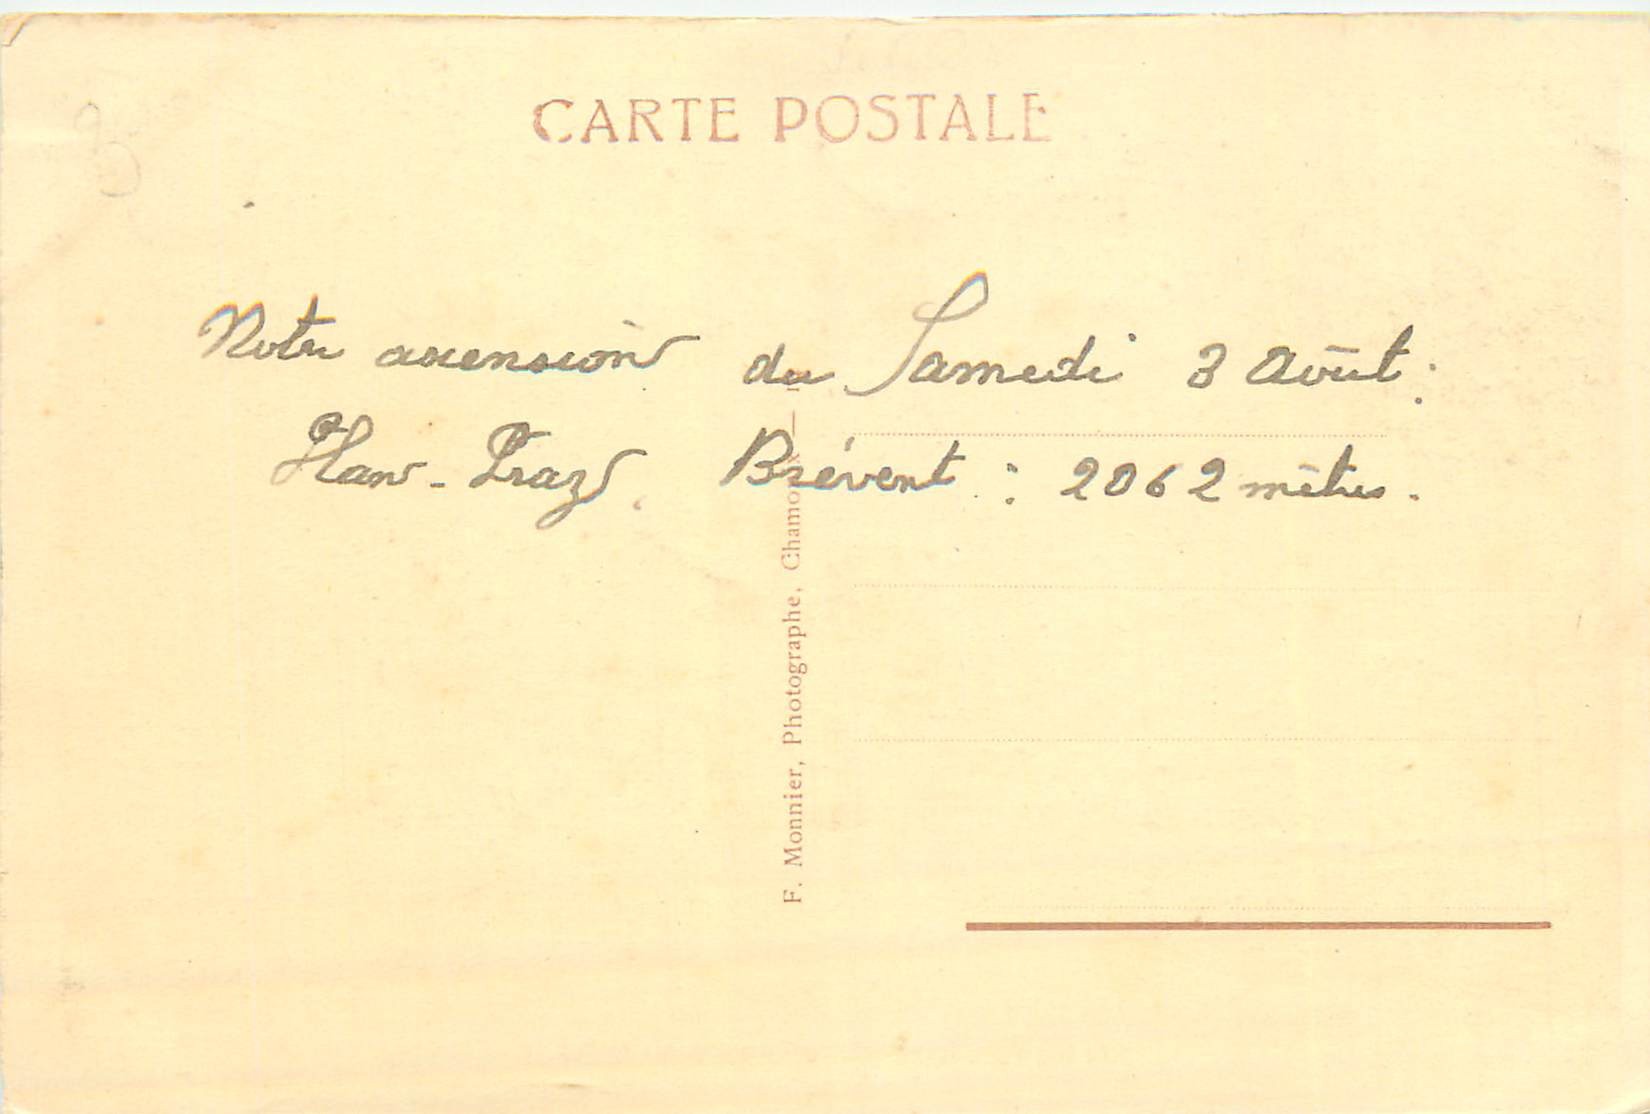 CARTE POSTALE
Notre ascension du Samedi 3 Août.
Plan-Praz Brévent : 2062 mètres.
F. Monnier, Photographe, Chamonix